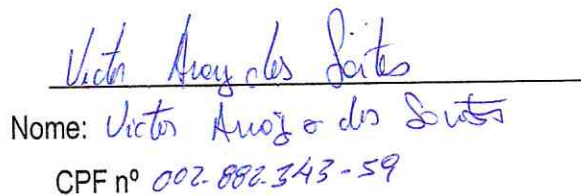 Victor Araujo dos Santos
Nome: Victor Araujo dos Santos
CPF nº 002.882.343-59